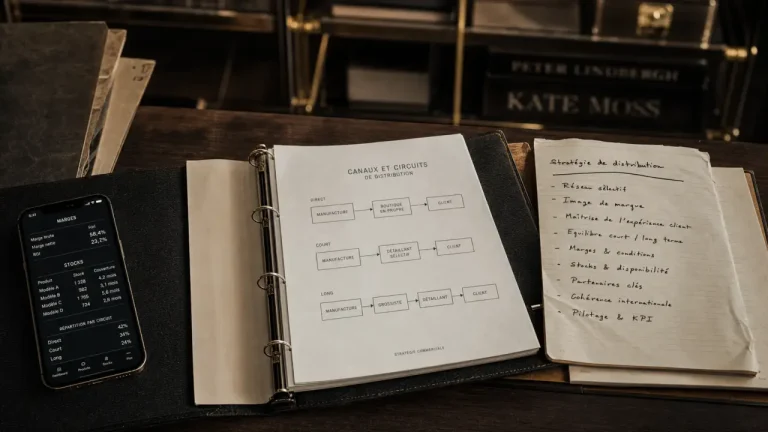 PETER LINDBERGH
KATE MOSS
MARGES
Marge brute 58,4%
Marge nette 23,7%
STOCKS
Produit Stock Couverture
Modèle A
Modèle B
Modèle C
Modèle D
RÉPARTITION PAR CIRCUIT
Direct 42%
Court 34%
Long 24%
CANAUX ET CIRCUITS
DE DISTRIBUTION
DIRECT
MANUFACTURE
BOUTIQUE
EN PROPRE
CLIENT
COURT
MANUFACTURE
DÉTAILLANT
SÉLECTIF
CLIENT
LONG
MANUFACTURE
GROSSISTE
DÉTAILLANT
CLIENT
Stratégie de distribution
- Réseau sélectif
- Image de marque
- Maîtrise de l'expérience client
- Equilibre court / long terme
- Marges & conditions
- Stocks & disponibilité
- Partenaires clés
- Cohérence internationale
- Pilotage & KPI